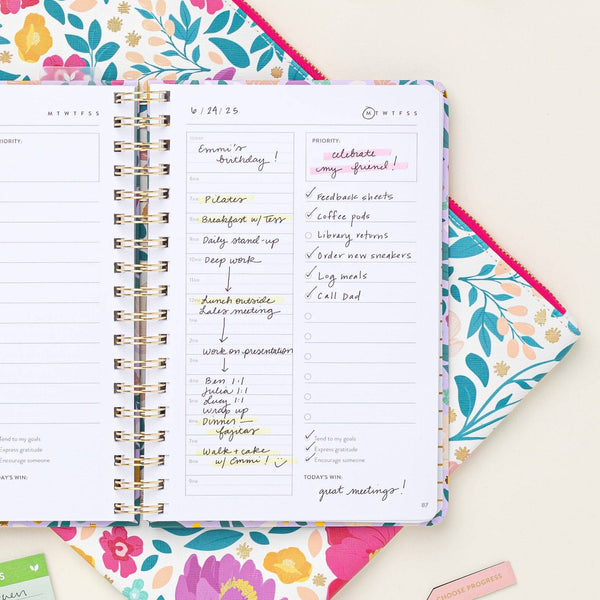 M T W T F S S
RIORITY:
6/24/25
M T W T F S S
TODAY
Emmi's
birthday!
PRIORITY:
celebrate
my friend!
6AM
7AM Pilates
8AM Breakfast w/ Tess
9AM Daily stand-up
10AM Deep work
12PM Lunch outside
Sales meeting
1PM
2PM
3PM Work on presentation
4PM
Ben 1:1
5PM Julia 1:1
Lucy 1:1
Wrap up
6PM Dinner —
fajitas
7PM
Walk + cake
8PM w/ Emmi!
9PM
Feedback sheets
Coffee pods
Library returns
Order new sneakers
Log meals
Call Dad
Tend to my goals
Express gratitude
Encourage someone
TODAY'S WIN:
great meetings!
87
end to my goals
xpress gratitude
ncourage someone
DAY'S WIN:
S
CHOOSE PROGRESS